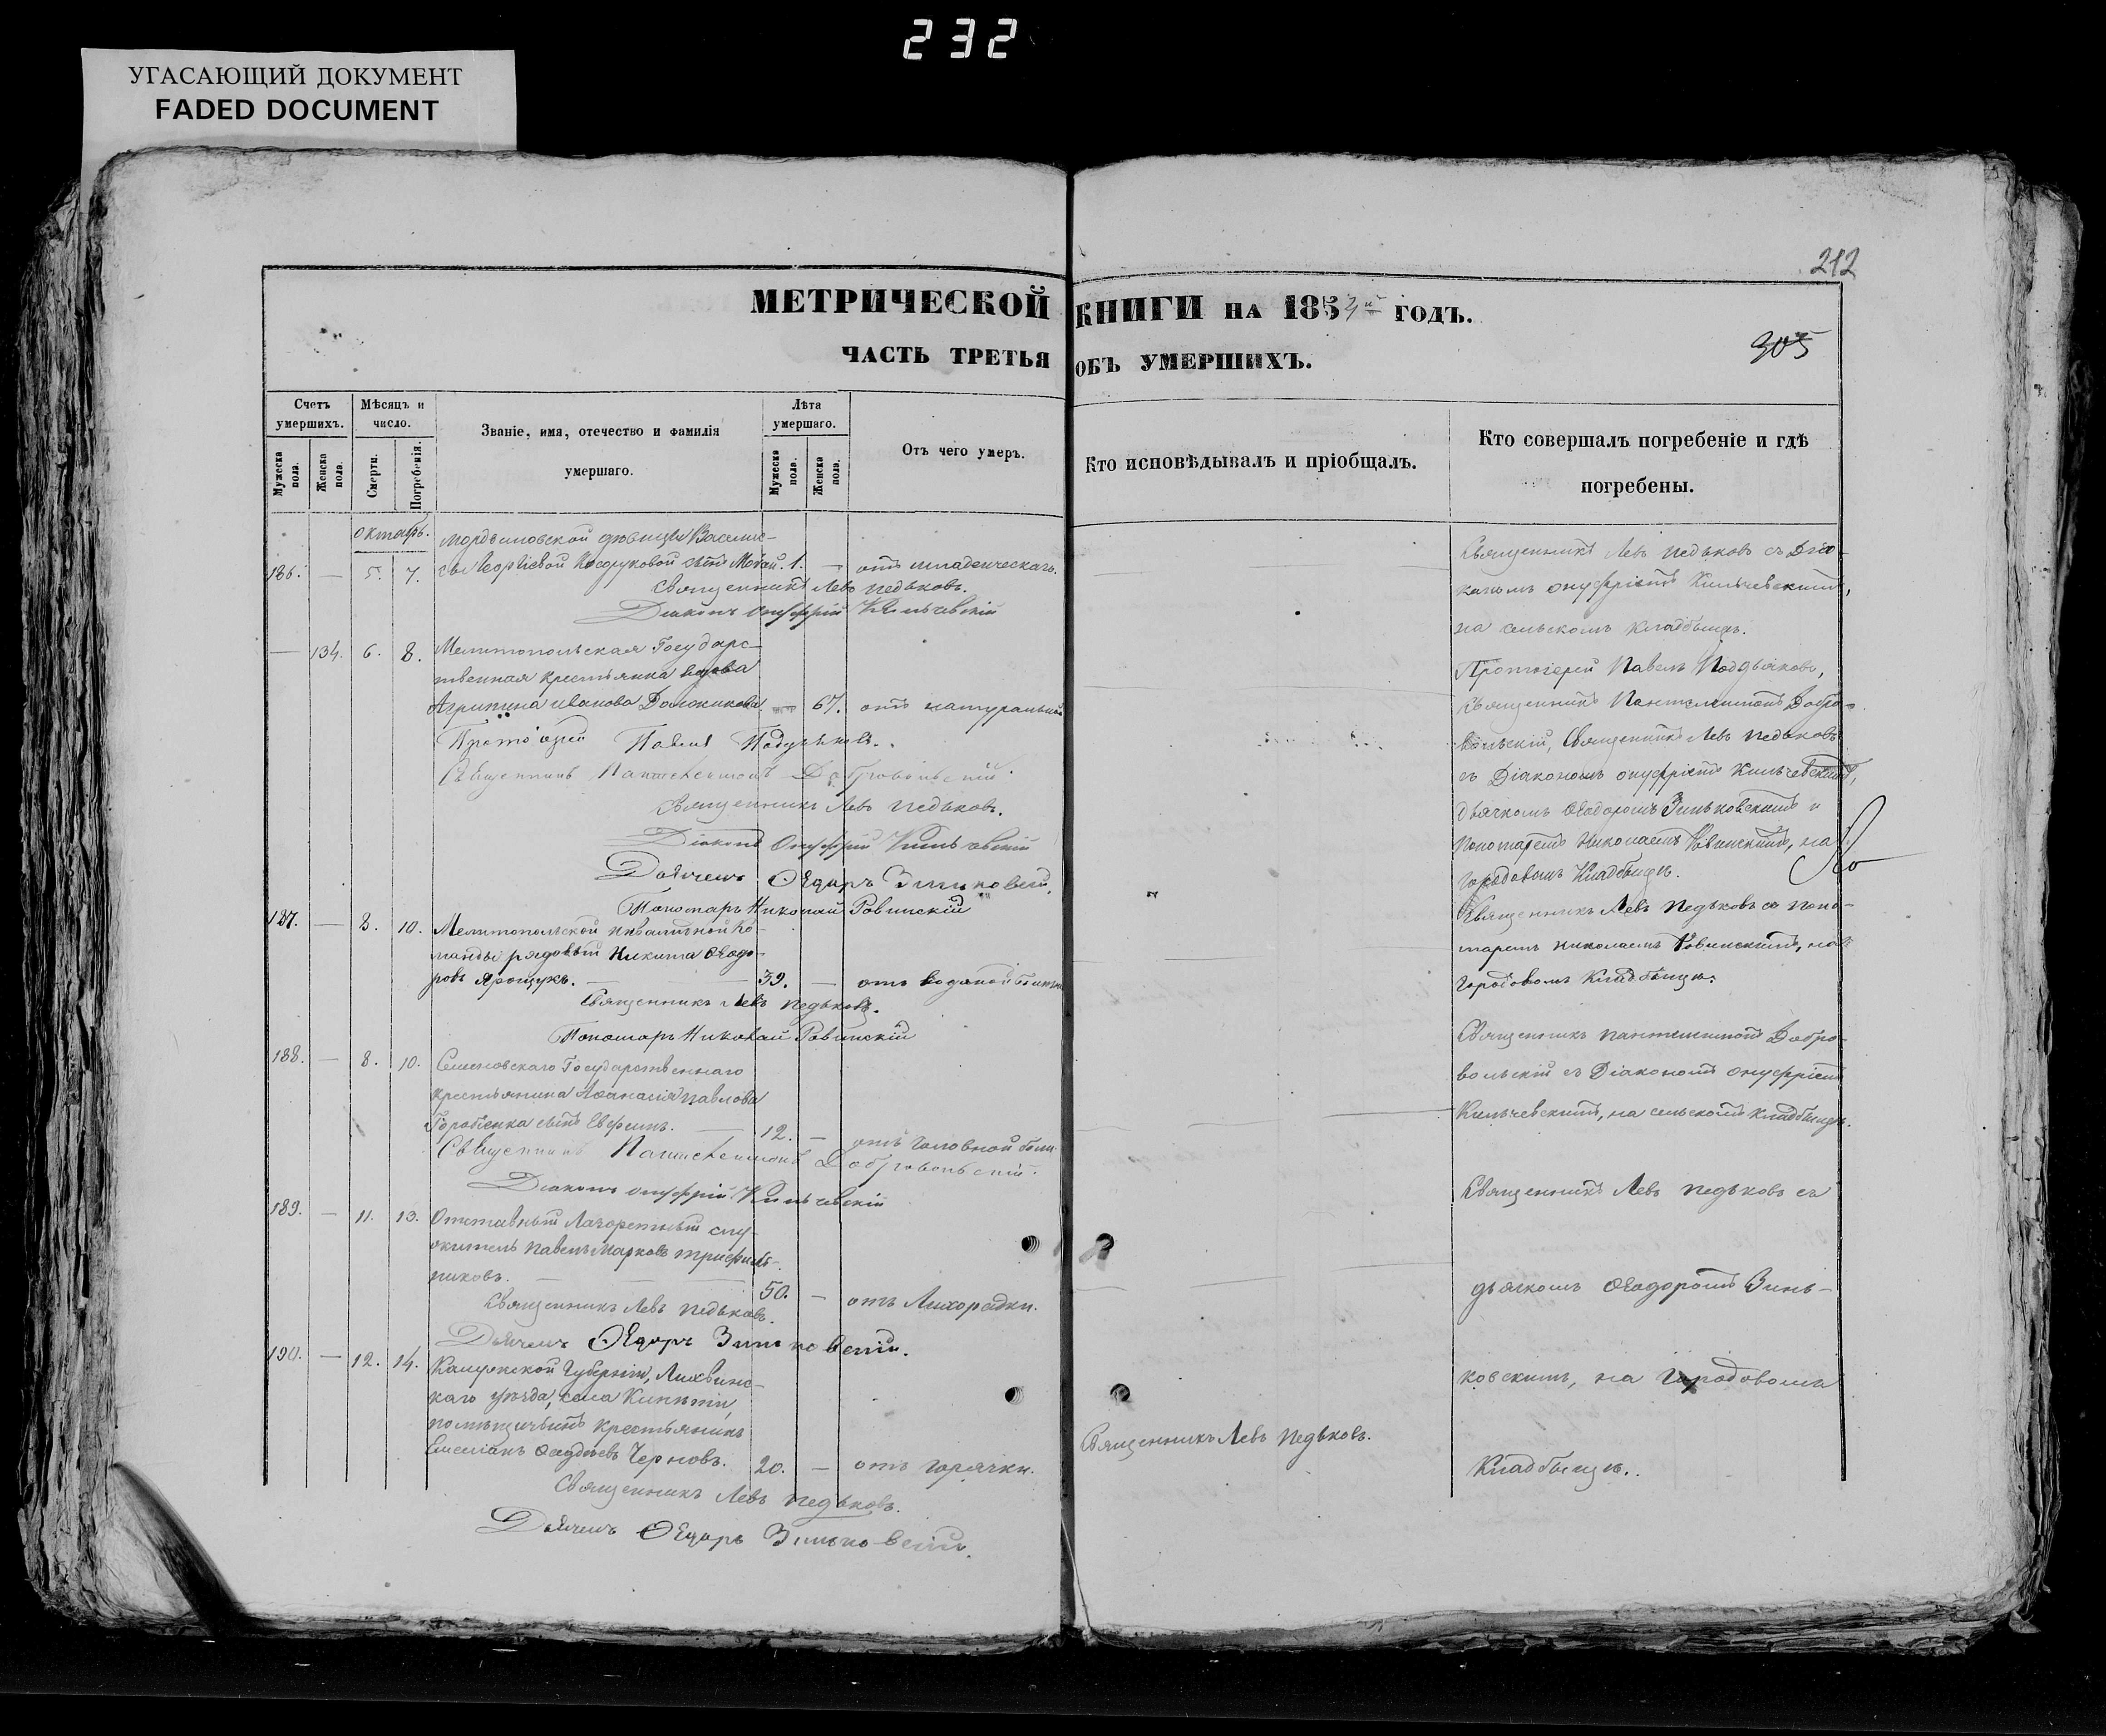 232
УГАСАЮЩИЙ ДОКУМЕНТ
FADED DOCUMENT
212
МЕТРИЧЕСКОЙ КНИГИ НА 1854й ГОДЪ.
305
ЧАСТЬ ТРЕТЬЯ ОБЪ УМЕРШИХЪ.
Счетъ умершихъ.
Мужеска пола.
Женска пола.
Мѣсяцъ и число.
Смерти.
Погребенія.
Званіе, имя, отечество и фамилія умершаго.
Лѣта умершаго.
Мужеска пола.
Женска пола.
Отъ чего умеръ.
Кто исповѣдывалъ и пріобщалъ.
Кто совершалъ погребеніе и гдѣ погребены.
октябрь.
Мордвиновской дѣвицы Васили-
186. — 5. 7. сы Георгіевой сынъ 1. — отъ младенческаго.
Священникъ Левъ Педьковъ.
Діаконъ Онуфрій Кильчевскій
Священникъ Левъ Педьковъ съ Діа-
кономъ Онуфріемъ Кильчевскимъ,
на сельскомъ кладбищѣ.
— 134. 6. 8. Мелитопольская Государс-
твенная крестьянка вдова
Агрипина Иванова — 67. отъ натуральной
Протоіерей Павелъ Поддьяковъ.
Священникъ Пантелеимонъ Добровольскій.
Священникъ Левъ Педьковъ.
Діаконъ Онуфрій Кильчевскій
Дьячекъ Ѳедоръ Зиньковскій.
Пономарь Николай Ровинскій
Протоіерей Павелъ Поддьяковъ,
Священникъ Пантелеимонъ Добро-
вольскій, Священникъ Левъ Педьковъ
съ Діакономъ Онуфріемъ Кильчевскимъ,
дьячкомъ Ѳеодоромъ Зиньковскимъ и
Пономаремъ Николаемъ Ровинскимъ, на
городовомъ кладбищѣ.
187. — 8. 10. Мелитопольской инвалидной ко-
манды рядовый Никита Ѳеодо-
ровъ Ярощукъ. — 39. — отъ водяной
Священникъ Левъ Педьковъ.
Пономарь Николай Ровинскій
Священникъ Левъ Педьковъ съ поно-
маремъ Николаемъ Ровинскимъ, на
городовомъ кладбищѣ.
188. — 8. 10. Семеновскаго Государственнаго
крестьянина Аѳанасія Павлова
Горобченка сынъ Евфимъ. — 12. — отъ головной боли
Священникъ Пантелеимонъ Добровольскій.
Діаконъ Онуфрій Кильчевскій
Священникъ Пантелеимонъ Добро-
вольскій съ Діакономъ Онуфріемъ
Кильчевскимъ, на сельскомъ кладбищѣ.
189. — 11. 13. Отставный Лазаретный слу-
житель Павелъ Марковъ
никовъ. — 50. — отъ Лихорадки.
Священникъ Левъ Педьковъ.
Дьячекъ Ѳедоръ Зиньковскій.
Священникъ Левъ Педьковъ съ
дьячкомъ Ѳеодоромъ Зинь-
ковскимъ, на городовомъ
кладбищѣ.
190. — 12. 14. Калужской Губерніи, Лихвинс-
каго уѣзда, села
помѣщичьий крестьянинъ
Емеліанъ Черновъ. 20. — отъ горячки.
Священникъ Левъ Педьковъ.
Священникъ Левъ Педьковъ.
Дьячекъ Ѳедоръ Зиньковскій.